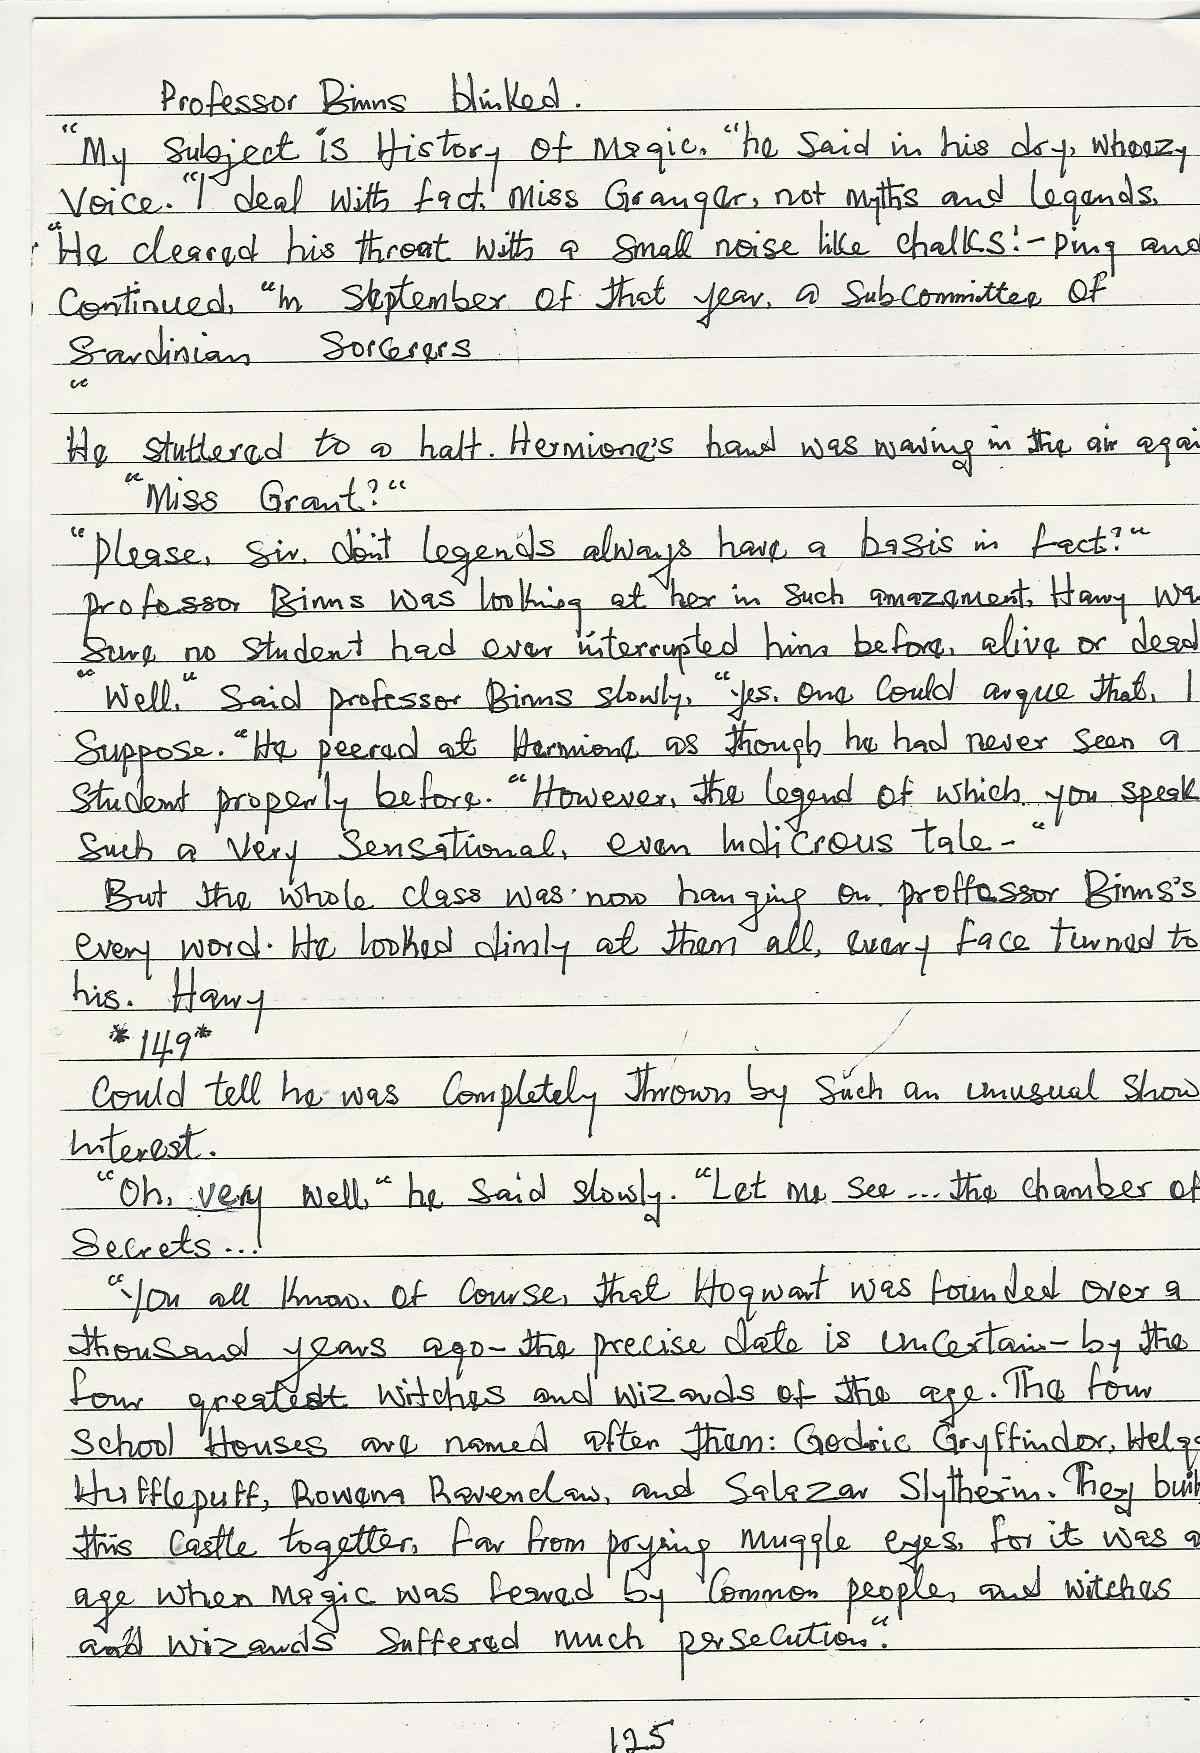 Professor Binns blinked.
"My Subject is History of Magic. "he Said in his dry, wheezy
Voice. "I deal with fact. Miss Granger, not myths and legends.
"He cleared his throat with a Small noise like chalks!-ping and
Continued. "In September of that year. a Subcommittee of
Sardinian Sorcerers
"
He stuttered to a halt. Hermione's hand was waving in the air agai
"Miss Grant?"
"Please, Sir. don't legends always have a basis in fact?"
Professor Binns was looking at her in Such amazement, Harry wa
Sure no Student had ever interrupted him before, alive or dead
"Well." Said professor Binns slowly, "yes. one Could argue that. I
Suppose. "He peered at Hermione as though he had never seen a
Student properly before. "However, the legend of which you speak
Such a Very Sensational, even ludicrous tale-"
But the whole class was now hanging on proffessor Binns's
every word. He looked dimly at them all, every face turned to
his. Harry
*149*
Could tell he was Completely thrown by Such an unusual Show
interest.
"Oh, very well" he Said slowly. "Let me See... the chamber of
Secrets...
"You all know. of Course, that Hogwart was founded over a
thousand years ago- the precise date is uncertain- by the
four greatest witches and wizards of the age. The four
School Houses are named after them: Godric Gryffindor, Helga
Hufflepuff, Rowena Ravenclaw, and Salazar Slytherin. They buil
this Castle together, far from prying muggle eyes, for it was a
age when Magic was feared by Common people, and witches
and wizards Suffered much persecution".
125